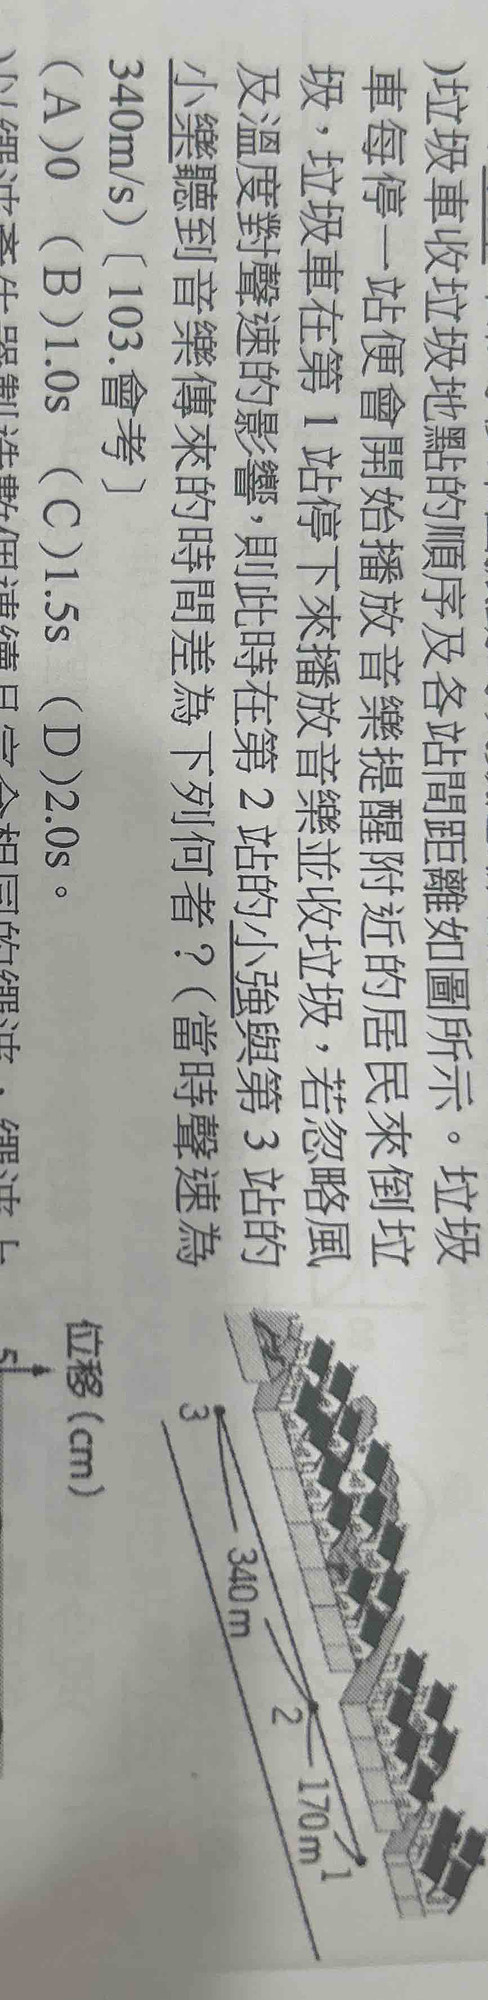 )垃圾車收垃圾地點的順序及各站間距離如圖所示。垃圾
車每停一站便會開始播放音樂提醒附近的居民來倒垃
圾，垃圾車在第1站停下來播放音樂並收垃圾，若忽略風
及溫度對聲速的影響，則此時在第2站的小強與第3站的
小樂聽到音樂傳來的時間差為下列何者？(當時聲速為
340m/s)〔103.會考〕
(A)0 (B)1.0s (C)1.5s (D)2.0s。
1
170m
2
340m
3
位移(cm)
5